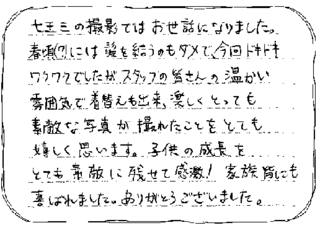 七五三の撮影ではお世話になりました。
春頃(?)には髪を結うのもダメで、今回ドキドキ
ワクワクでしたがスタッフの皆さんの温かい
雰囲気で着替えも出来、楽しくとっても
素敵な写真が撮れたことをとても
嬉しく思います。子供の成長を
とても素敵に残せて感激！家族皆にも
喜ばれました。ありがとうございました。